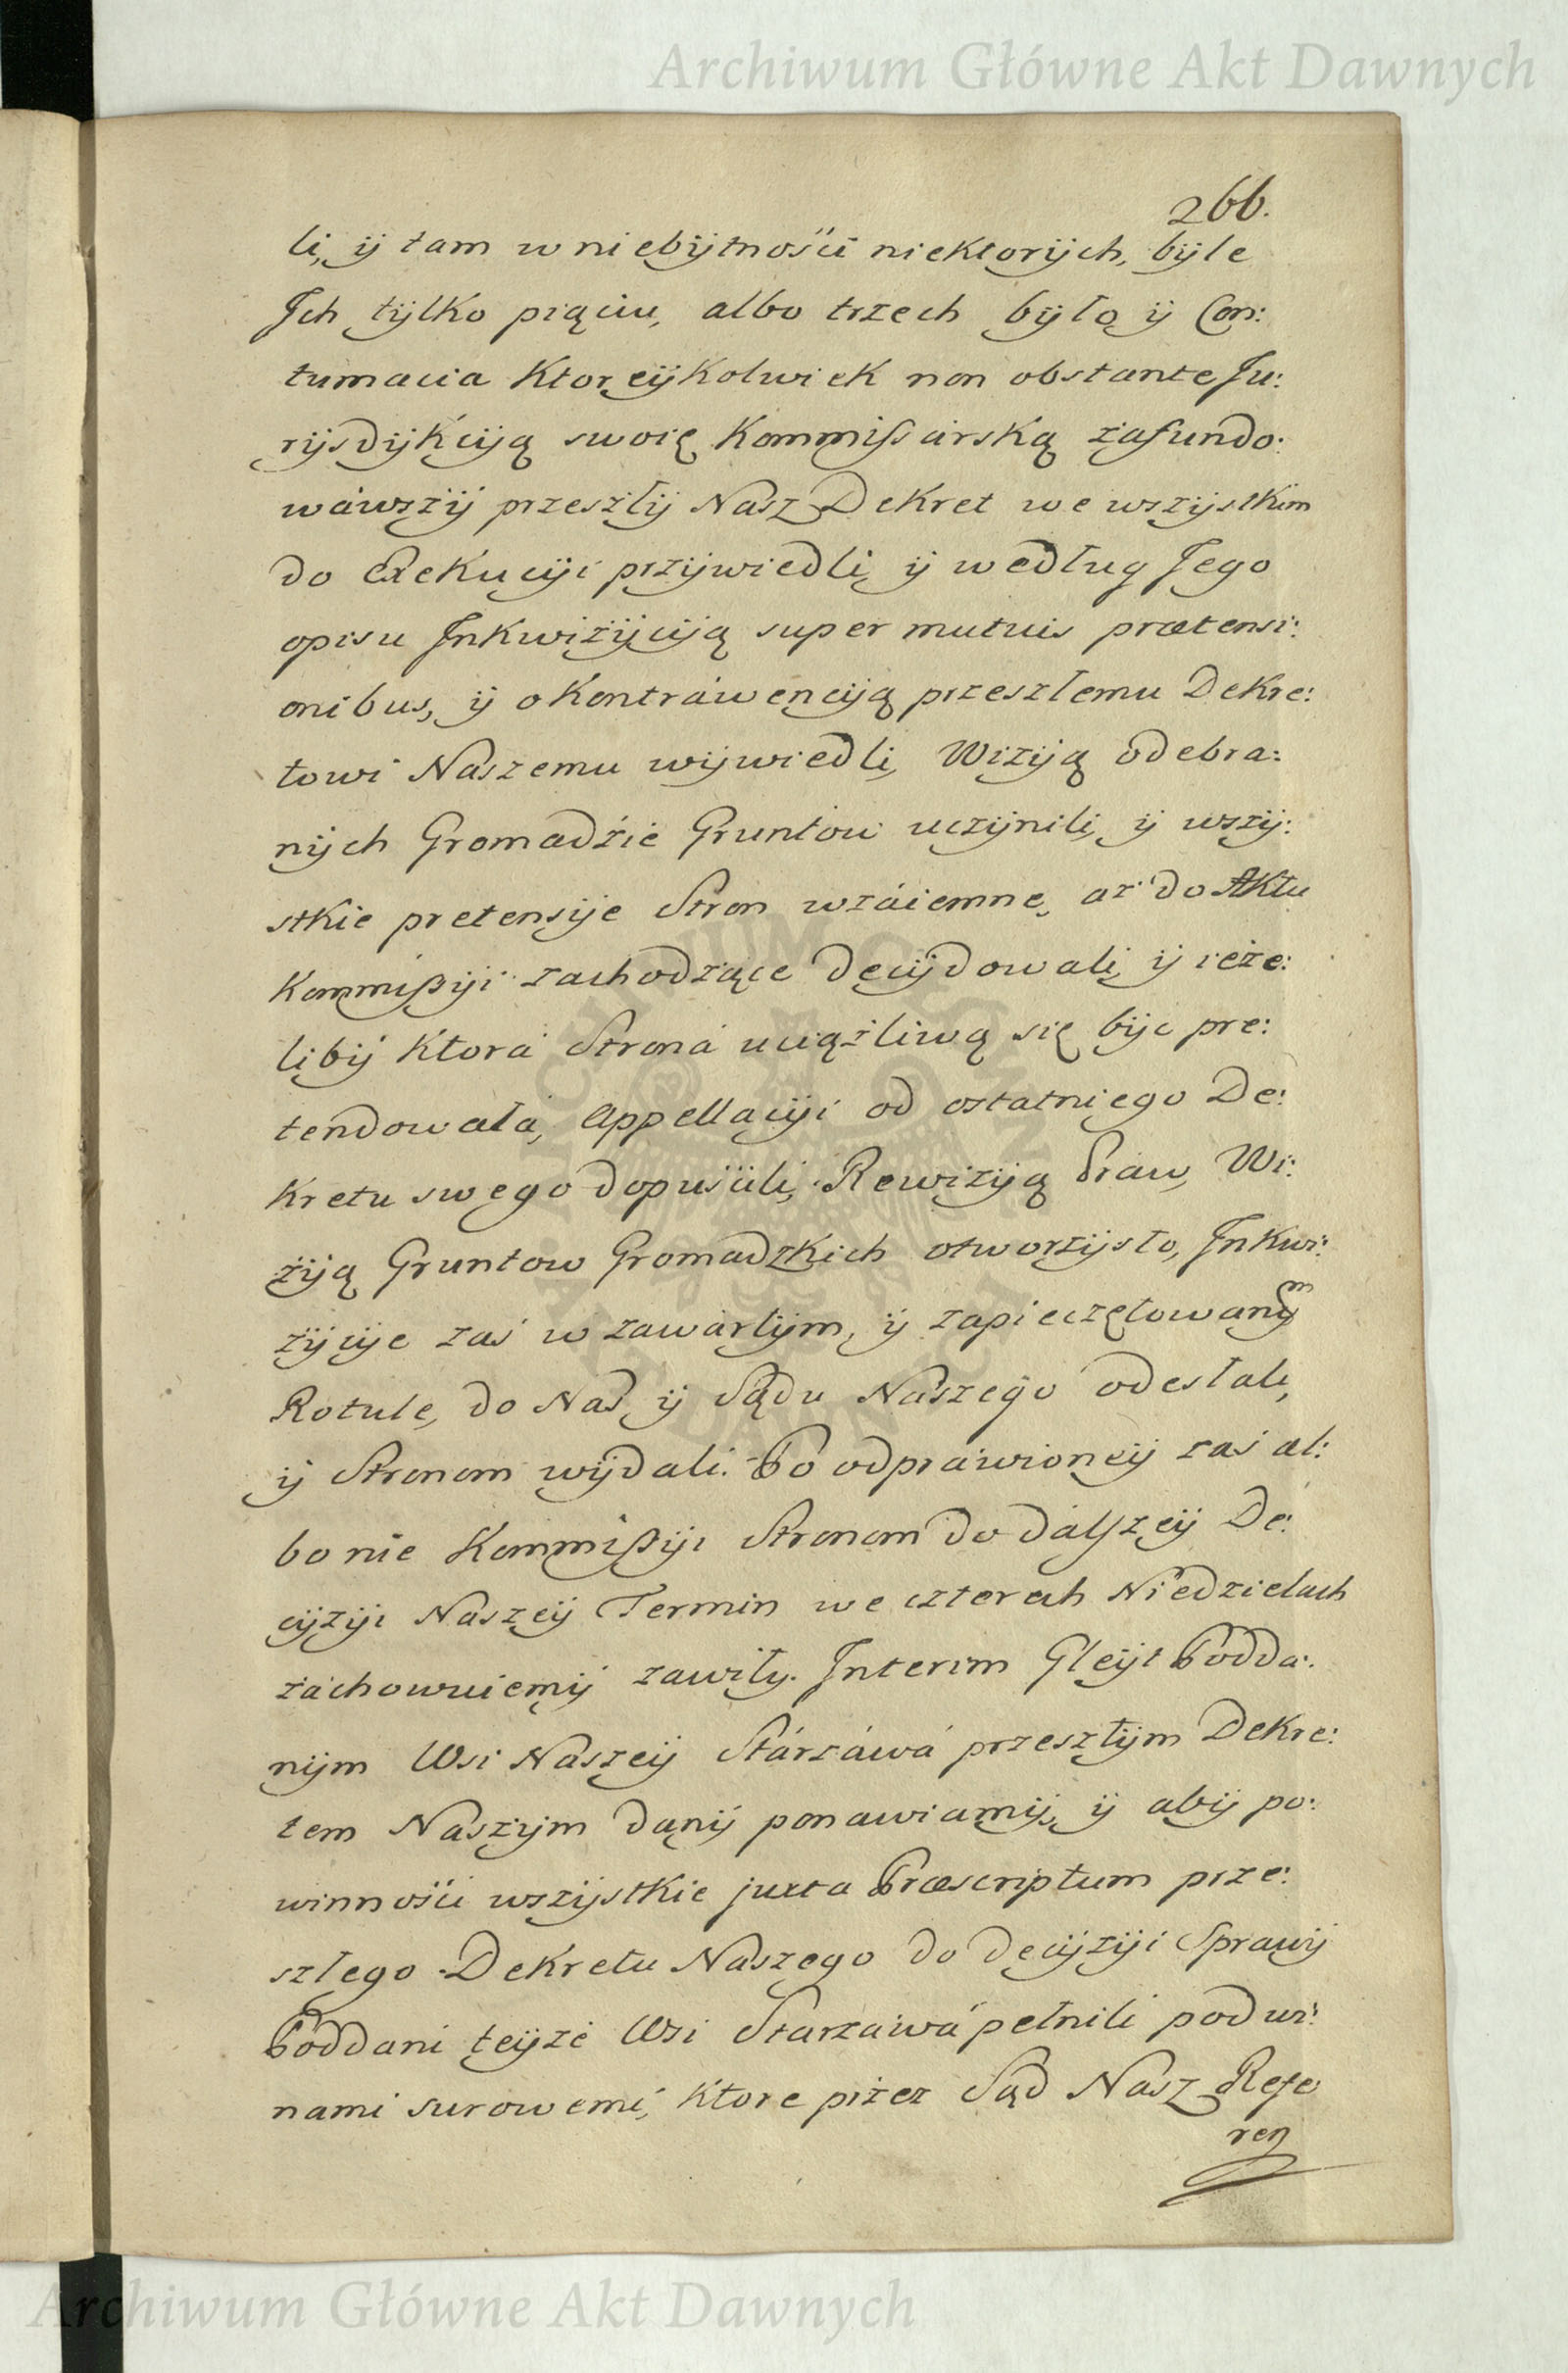 Archiwum Główne Akt Dawnych
266.
li, ÿ tam w niebÿtnośći niektorÿch, bÿle
Ich tÿlko pięćiu, albo trzech bÿło ÿ Con:
tumacia ktoreÿkolwiek non obstante Ju:
rÿsdÿkcÿą swoię Kommissárską zafundo:
wáwszÿ przeszłÿ Nász Dekret we wszÿstkim
do Exekucÿi przÿwiedli, ÿ według Jego
opisu Inkwizÿcÿą super mutuis prætensi:
onibus, ÿ o Kontráwencÿą przeszłemu Dekre:
towi Nászemu wÿwiedli, Wizÿą odebra:
nÿch Gromadźie Gruntow uczÿnili, ÿ wszÿ:
stkie pretensÿe Stron wzáiemne, aż do Aktu
Kommissÿi zachodzące decÿdowali, ÿ ieże:
libÿ ktorá Stroná uciążliwą się bÿc pre:
tendowałá, Appellacÿi od ostatniego De:
kretu swego dopuśćili, Rewizÿą Praw, Wi:
zÿą Gruntow Gromadzkich otworzÿsto, Inkwi:
zÿcÿe zaś w zawártÿm, ÿ zapieczętowanÿm
Rotule, do Nas, ÿ Sądu Nászego odesłali,
ÿ Stronom wÿdali. Po odpráwioneÿ zaś al:
bo nie Kommissÿi Stronom do dálszeÿ De:
cÿzÿi Nászeÿ Termin we czterech Niedzielach
záchowuiemÿ zawitÿ. Interim Gleÿt Podda:
nÿm Wsi Nászeÿ Stárzáwá przeszłÿm Dekre:
tem Nászÿm danÿ ponawiamÿ, ÿ abÿ po:
winnośći wszÿstkie juxta Præscriptum prze:
szłego Dekretu Nászego do decÿzÿi Sprawÿ
Poddani teÿże Wsi Starzáwá pełnili pod wi:
nami surowemi, ktore przez Sąd Nász Refe
ren
Archiwum Główne Akt Dawnych